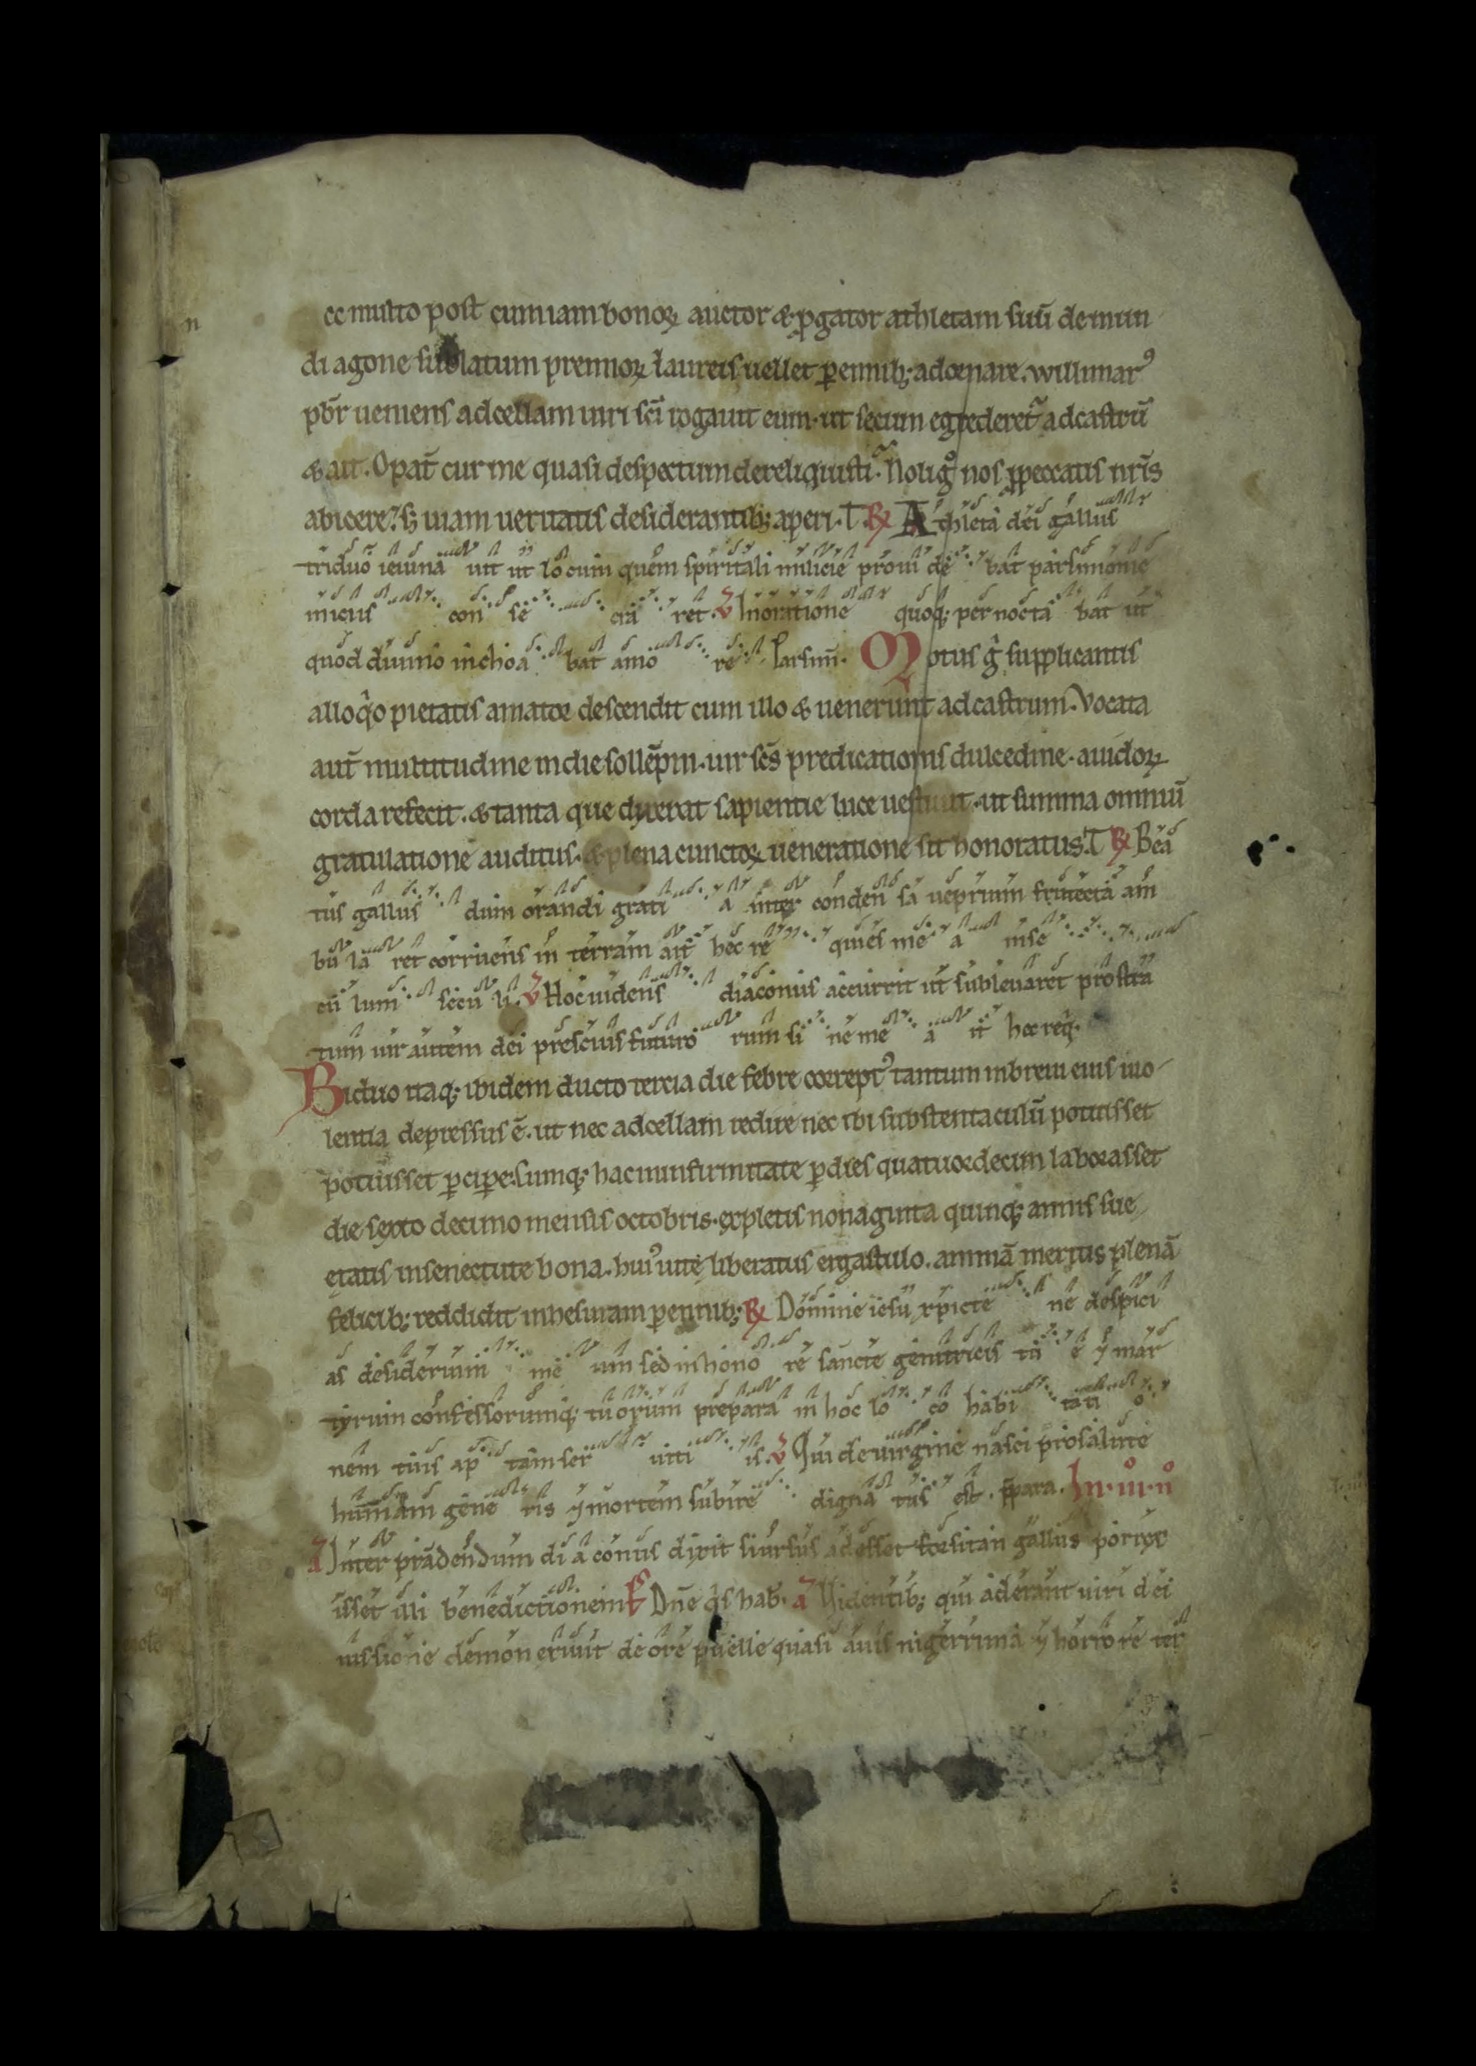 ec multo post cum iam bonoꝝ auctor & ꝓgator athletam suū de mun
di agone sublatum premioꝝ laureis uellet ꝑennibꝫ adornare. willimarꝰ
pbr̄ ueniens ad cellam uiri sc̄i rogauit eum. ut secum egrederet᷑ ad castrū
& ait. O pat̄ cur me quasi despectum dereliquisti. Noli gͦ nos ꝓ peccatis nr̄is
abicere. sꝫ uiam ueritatis desiderantibꝫ aperi. T ℞ Athleta dei gallus
triduo ieiuna uit ut locum quem spiritali milicie proui de bat parsimonie
inicius con se cra ret. V In oratione quoqꝫ pernocta bat ut
quod diuino inchoa bat amo re. Parsim̄. Motus g̊ supplicantis
alloq̊o pietatis amator descendit cum illo & uenerunt ad castrum. Vocata
aut̄ multitudine in die sollēpni. uir sc̄s predicationis dulcedine. auidoꝝ
corda refecit. & tanta que dixerat sapientie luce uestiuit. ut summa omniū
gratulatione auditus. & plena cunctoꝝ ueneratione sit honoratus. T ℞ Bea
tus gallus dum orandi grati a inter conden sa ueprium fruteta am
bu la ret corruens in terram ait hec re quies me a in se
cu lum secu li. V Hoc uidens diaconus accurrit ut subleuaret prostra
tum uir autem dei prescius futuro rum si ne me a it hec req̄.
Biduo itaqꝫ ibidem ducto tercia die febre correptꝰ tantum in breui eius uio
lentia depressus ē. ut nec ad cellam redire nec cibi substentaculū potuisset
potuisset ꝑciꝑe. Cumqꝫ hac in infirmitate ꝑ dies quatuordecim laborasset
die sexto decimo mensis octobris. expletis nonaginta quinqꝫ annis sue
ętatis in senectute bona. huiꝰ uitę liberatus ergastulo. animā meritis plenā
felicibꝫ reddidit inhesuram ꝑennibꝫ ℞ Domine iesu xpicte ne despici
as desiderium me um sed in hono re sancte genitricis tu e ⁊ mar
tyrum confessorumqꝫ tuorum prepara in hoc lo co habi tati o
nem tuis ap tam ser uiti is. V Qui de uirgine nasci pro salute
humani gene ris ⁊ mortem subire digna tus est. p̄para. In .iiiº. nº
A Inter prādendum di a conus dixit si ursus adesset forsitan gallus porrex
isset illi benedictionem Ps Dn̄e q̊s hab. A Videntibꝫ qui aderant uiri dei
iussione demon exiuit de ore puelle quasi auis nigerrima ⁊ horrore ter